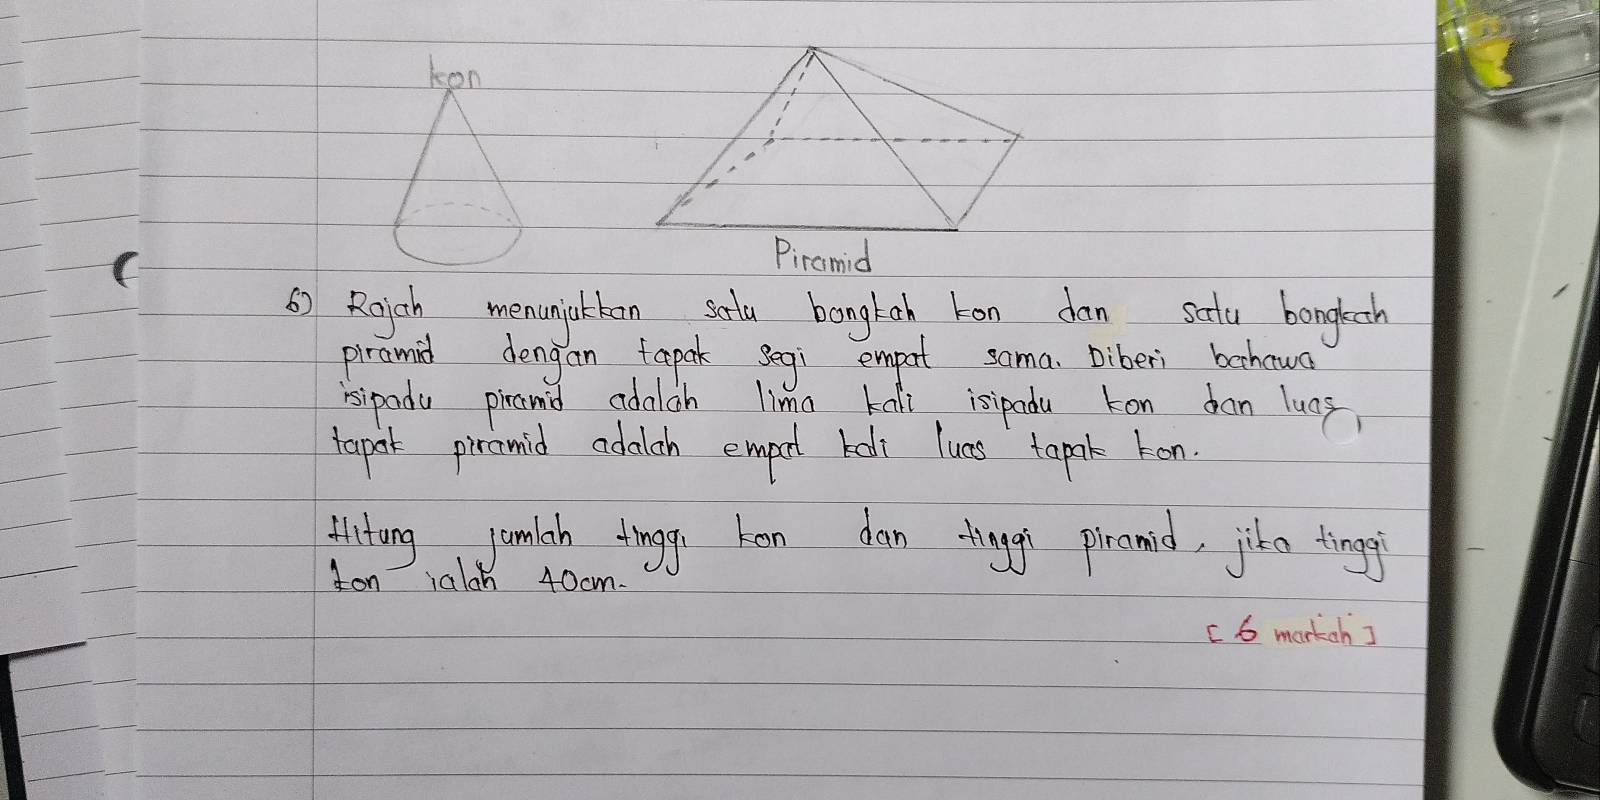 kon
Piramid
6) Rajah menunjukkan satu bongkah kon dan satu bongkah
piramid dengan tapak segi empat sama. Diberi bahawa
isipadu piramid adalah lima kali isipadu kon dan luas
tapak piramid adalah empat kali luas tapak kon.
Hitung jumlah tinggi kon dan tinggi piramid, jika tinggi
kon ialah 40cm.
[6 markah]